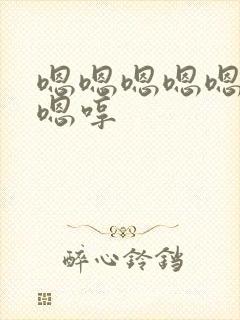 嗯嗯嗯嗯嗯
嗯哼
醉心铃铛